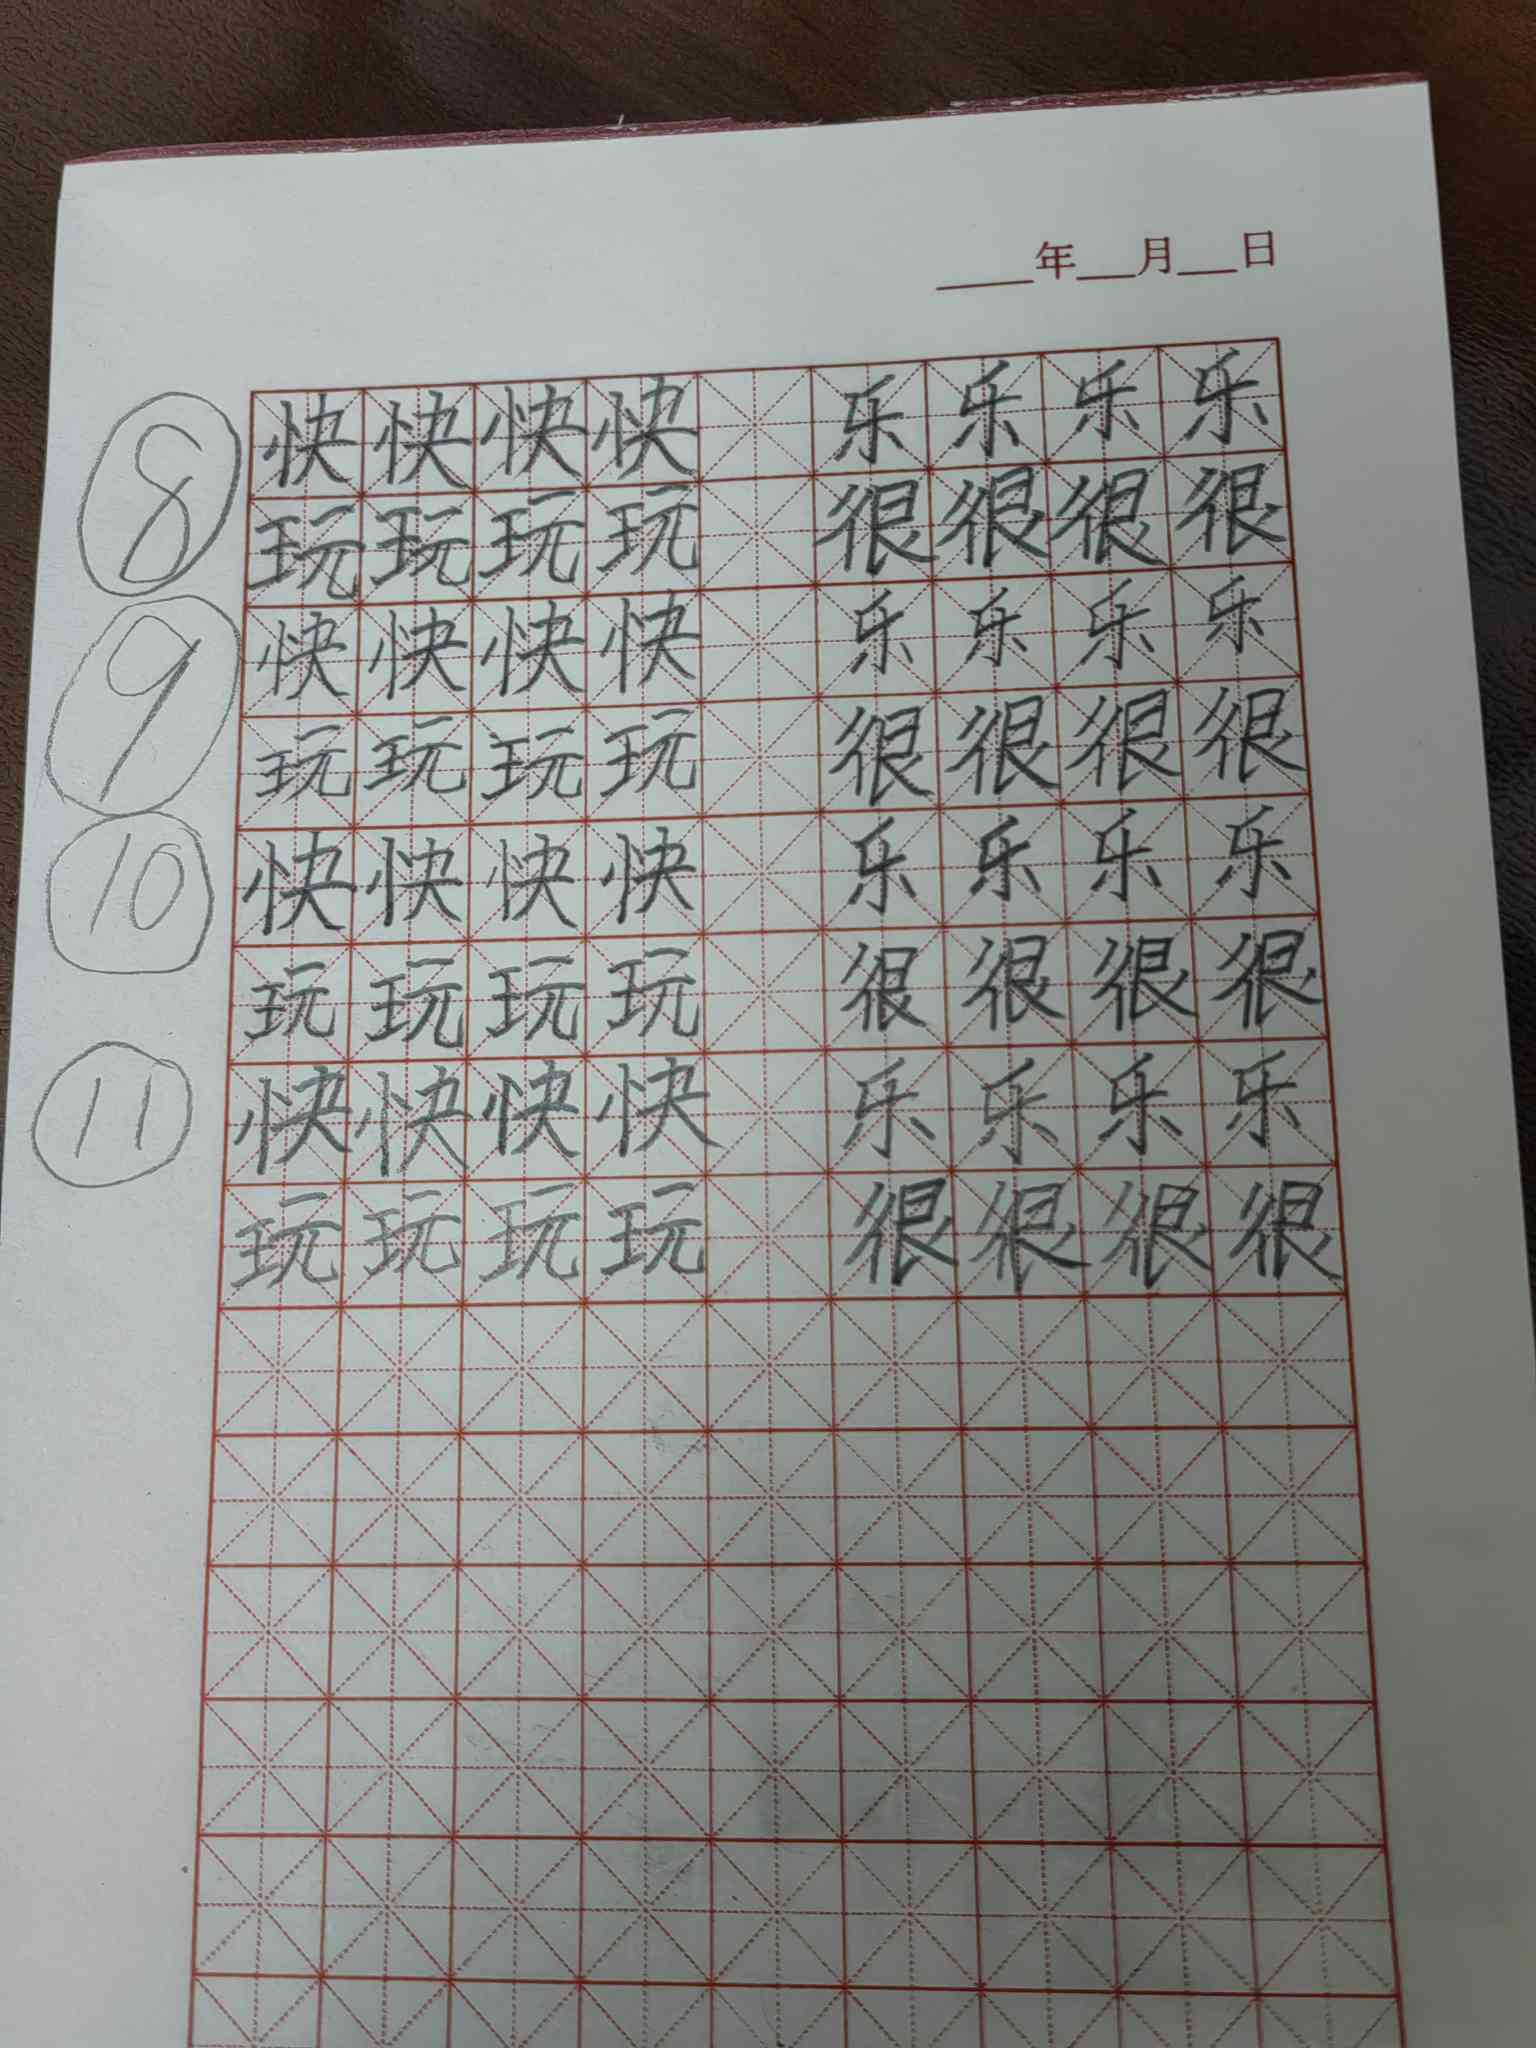 年 月 日
⑧ 快 快 快 快 乐 乐 乐 乐
玩 玩 玩 玩 很 很 很 很
⑨ 快 快 快 快 乐 乐 乐 乐
玩 玩 玩 玩 很 很 很 很
⑩ 快 快 快 快 乐 乐 乐 乐
玩 玩 玩 玩 很 很 很 很
⑪ 快 快 快 快 乐 乐 乐 乐
玩 玩 玩 玩 很 很 很 很